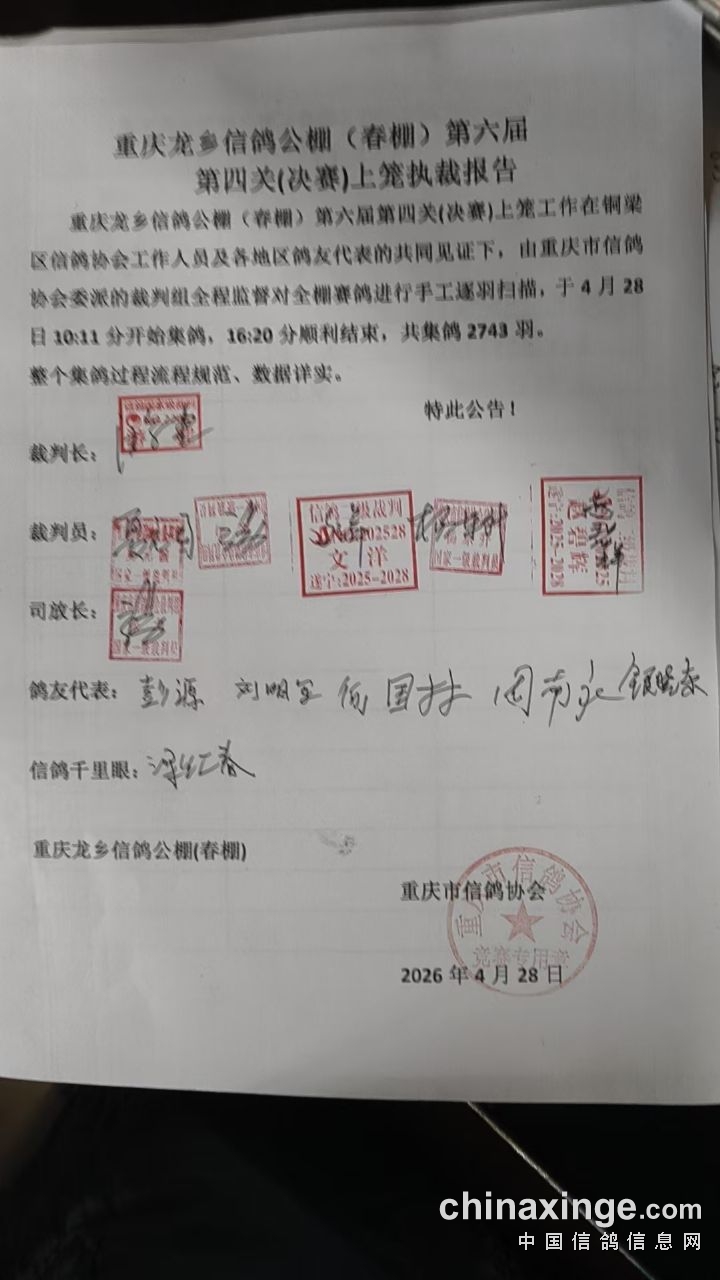 重庆龙乡信鸽公棚（春棚）第六届
第四关(决赛)上笼执裁报告
重庆龙乡信鸽公棚（春棚）第六届第四关(决赛)上笼工作在铜梁
区信鸽协会工作人员及各地区鸽友代表的共同见证下，由重庆市信鸽
协会委派的裁判组全程监督对全棚赛鸽进行手工逐羽扫描，于 4 月 28
日 10:11 分开始集鸽，16:20 分顺利结束，共集鸽 2743 羽。
整个集鸽过程流程规范、数据详实。
特此公告！
裁判长：
裁判员：
国家一级裁判员
信鸽二级裁判
文 洋
遂宁:2025-2028
国家一级裁判员
赵碧辉
遂宁:2025-2028
司放长：
国家一级裁判员
鸽友代表：彭源 刘明
信鸽千里眼：
重庆龙乡信鸽公棚(春棚)
重庆市信鸽协会
重庆市信鸽协会
竞赛专用章
2026 年 4 月 28 日
chinaxinge.com
中国信鸽信息网